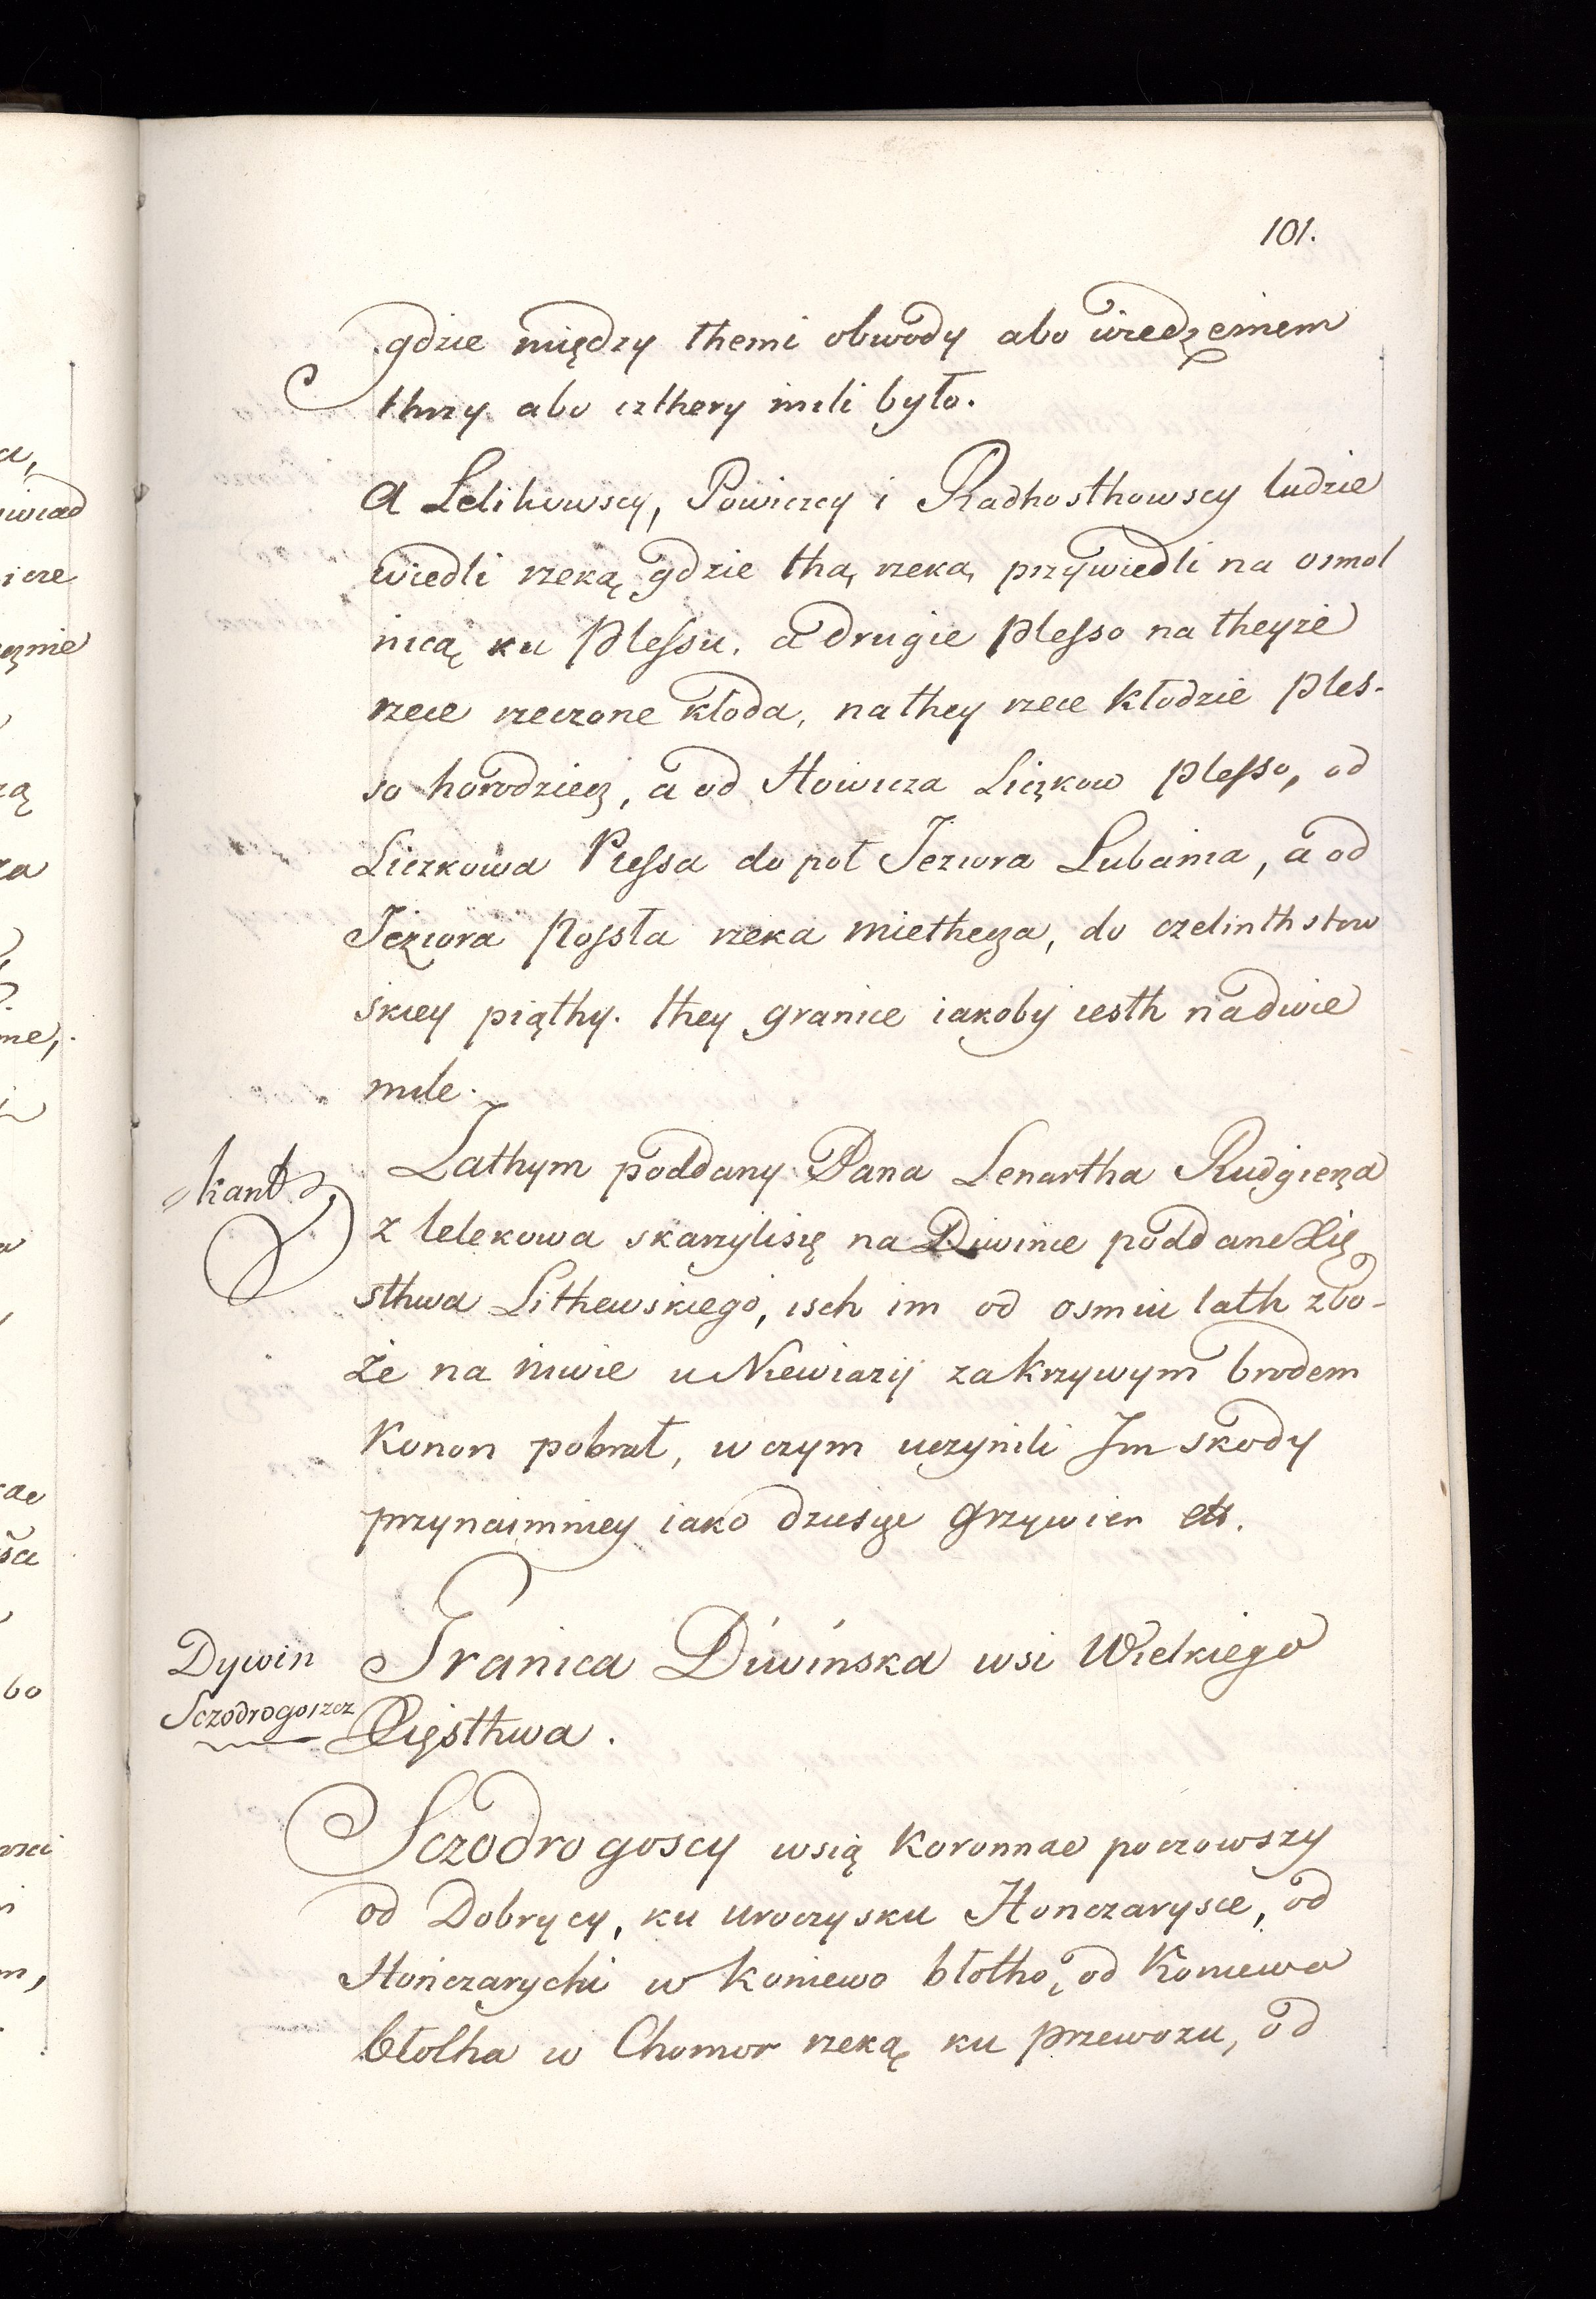 101.
gdzie między themi obwody abo wiedzeniem
thrzy abo czthery mili było.
a Lelikowscy, Powiczcy i Radhosthowscy ludzie
wiedli rzeką gdzie thą rzeką przywiedli na osmol
nicą ku Plessu. a drugie Plesso na theyże
rzece rzeczone kłoda, na they rzece kłodzie ples-
so horodziecz, a od Howicza Liczkow plesso, od
Liczkowa Plessa do poł Jeziora Lubania, a od
Jeziora Possła rzeka miethecza, do czelinthstow
skiey piąthy. they granice iakoby iesth na dwie
mile.
skant
Zathym poddany Pana Lenartha Rudgierza
z lelekowa skarzyli się na Diwince poddane Xię
sthwa Lithewskiego, isch im od osmiu lath zbo-
że na niwie u Niewiarij za krzywym brodem
Konon pobrał, w czym uczynili Jm skody
przynaimniey iako dziesięc grzywien etc.
Dywin
Sczodrogoszcz
Granica Diwińska wsi Wielkiego
Xięsthwa.
Sczodrogoscy wsią Koronnae poczowszy
od Dobrycy, ku uroczysku Honczarysce, od
Hończarychi w koniewo błotho, od Koniewa
błotha w Chomor rzeką ku przewozu, od